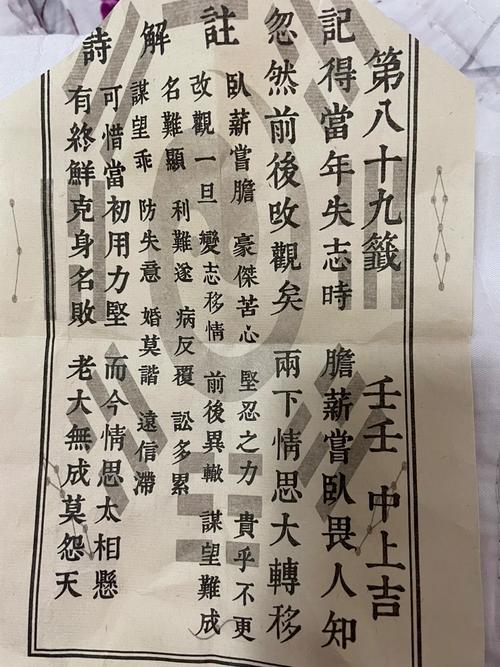 第八十九籤 壬壬 中上吉
記得當年失志時 膽薪嘗臥畏人知
忽然前後改觀矣 兩下情思大轉移
註
臥薪嘗膽 豪傑苦心 堅忍之力 貴乎不更
改觀一旦 變志移情 前後異轍 謀望難成
解
名難顯 利難遂 病反覆 訟多累
謀望乖 防失意 婚莫諧 遠信滯
詩
可惜當初用力堅 而今情思太相懸
有終鮮克身名敗 老大無成莫怨天